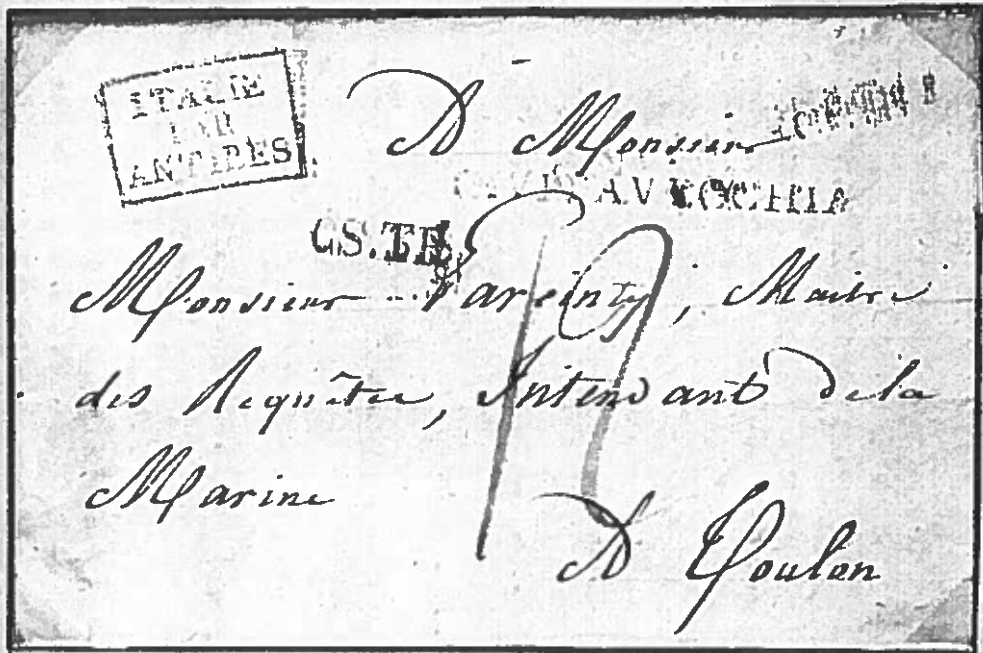 ITALIE
PAR
ANTIBES
A Monsieur
CIVITAVECCHIA
Monsieur , Maitre
des Requêtes, Intendant de la
Marine
A Toulon